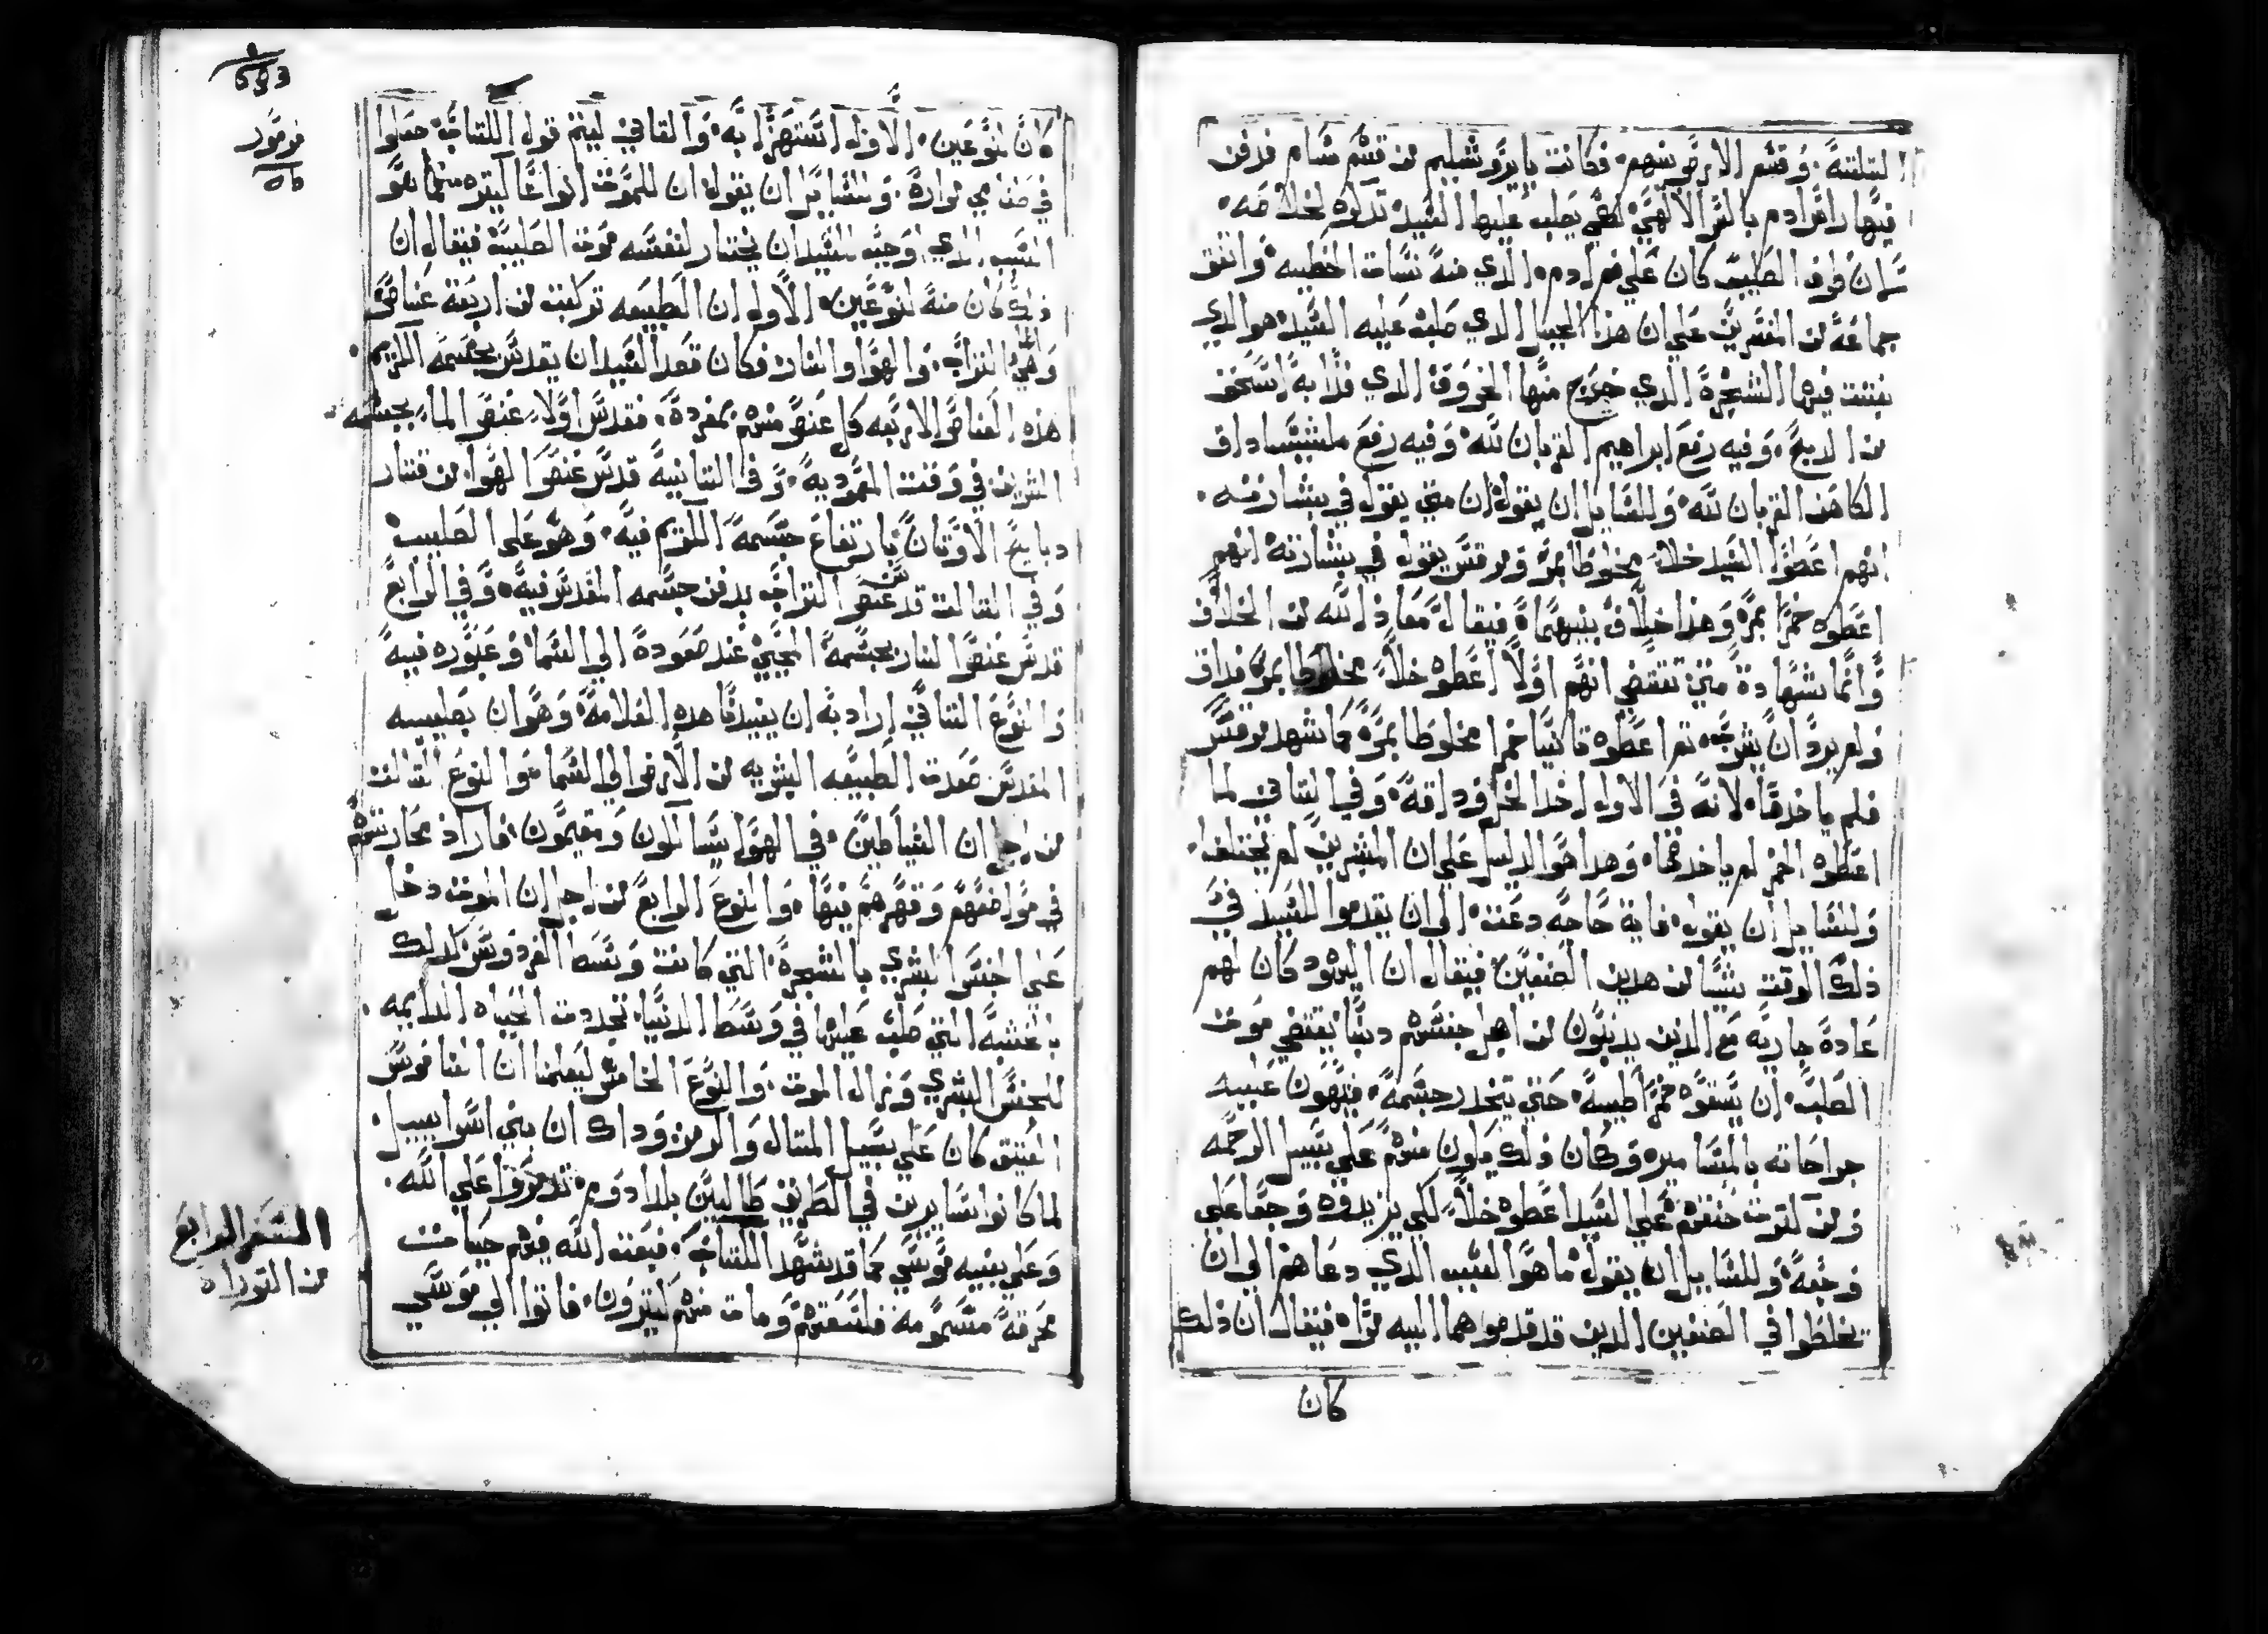 الثلثة وقسم الارض بينهم فكانت يايروشليم من قسم سام فدفن
فيها راس ادم بالسر الالهي لكي يصلب عليها السيد تدلوه لخلاصه
كان علي فم ادم الدي منه نشات الخطيه واتفق
جماعة من المفسرين علي ان هدا الجبل الدي صلب عليه السيد هو الدي
نبتت فيها الشجرة الدي خرج منها الخروف الدي فدا به اسحق
من الدبح وفيه رفع ابراهيم القربان لله وفيه رفع ملشيساداق
الكاهن القربان لله وللسايل ان يقول ان متي يقول في بشارته
انهم اعطوا السيد خلا مخلوطا بمر ومرقس يقول في بشارته انهم
اعطوه خمرا بمر وهدا خلاف بينهما فيقال معاد الله من الخلاف
وانما شهادة متي تقتضي انهم اولا اعطوه خلا مخلوطا بمر فداق
ولم يرد ان يشربه تم اعطوه تانيا خمرا مخلوطا بمر كما شهد مرقس
فلم ياخدها لانه في الاول اخد الخل وداقه وفي التاني لما
اعطوه الخمر لم ياخدها وهدا هو الدليل علي ان المبشرين لم يختلفوا
وللسايل ان يقول فاية حاجه دعت الي ان يقدموا للسيد في
دلك الوقت شيا من هدين الصنفين فيقال ان اليهود كان لهم
عادة جاريه مع الدين يدنبون من اهل جنسهم دنبا يقتضي موت
الصلب ان يسقوه خمرا طيبه حتي تتخدر جسمه فيهون عليه
جراحاته بالمسامير وكان دلك يكون منهم علي سبيل الرحمه
ومن لقوت حنقهم علي السيد اعطوه خلا لكي يزيدوه وجعا علي
وجعه وللسايل ان يقول ما هو السبب الدي دعاهم الي ان
يخلطوا في الصنفين الدين قد قدموهما اليه مرا فيقال ان دلك
كان
كان لنوعين الاول استهزا به والتاني ليتم قول الكتاب جعلوا
في طعامي مرارة وللسايل ان يقول ان للموت انواعا كتيره فما هو
السبب الدي اوجب للسيد ان يختار لنفسه موت الصليب فيقال ان
دلك كان منه لنوعين الاول ان الطبيعه تركبت من اربعة عناصر
وهي الما التراب والهوا والنار فكان قصد السيد ان يقدس بجسمه الكريم
هده العناصر الاربعه كل عنصر منهم بمفرده فقدس اولا عنصر الما بجسمه
الشريف في وقت المعمودية وفي التانية قدس عنصر الهوا من قتار
دبايح الاوتان بارتفاع جسمه الكريم فيه وهو علي الصليب
وفي التالت قدس عنصر التراب بدفن جسمه المقدس فيه وفي الرابع
قدس عنصر النار بجسمه المحيي عند صعوده الي السما وعبوره فيه
والنوع التاني اراد به ان يفيدنا هده العلامه وهو ان بصليبه
المقدس صعدت الطبيعه البشريه من الارض الي السما والنوع التالت
من اجل ان الشياطين في الهوا يتسالمون ومقيمون فاراد محاربتهم
في مواضعهم وقهرهم فيها والنوع الرابع من اجل ان الموت دخل
علي الجنس البشري بالشجرة التي كانت وسط الفردوس كدلك
بخشبة التي صلب عليها في وسط الدنيا تجددت الحياه الدايمه
للجنس البشري وزال الموت والنوع الخامس ليعلمنا ان الناموس
العتيق كان علي سبيل المتال والرمز وداك ان بني اسراييل
لما كانوا سايرين في الطريق طالبين بلد ادوم تدمروا علي الله
وعلي نبيه موسي كما قد شهد الكتاب فبعت الله فيهم حيات
محرقه مسمومه فلسعتهم ومات منهم كتيرون فاتوا الي موسي
السفر الرابع
من التوراه